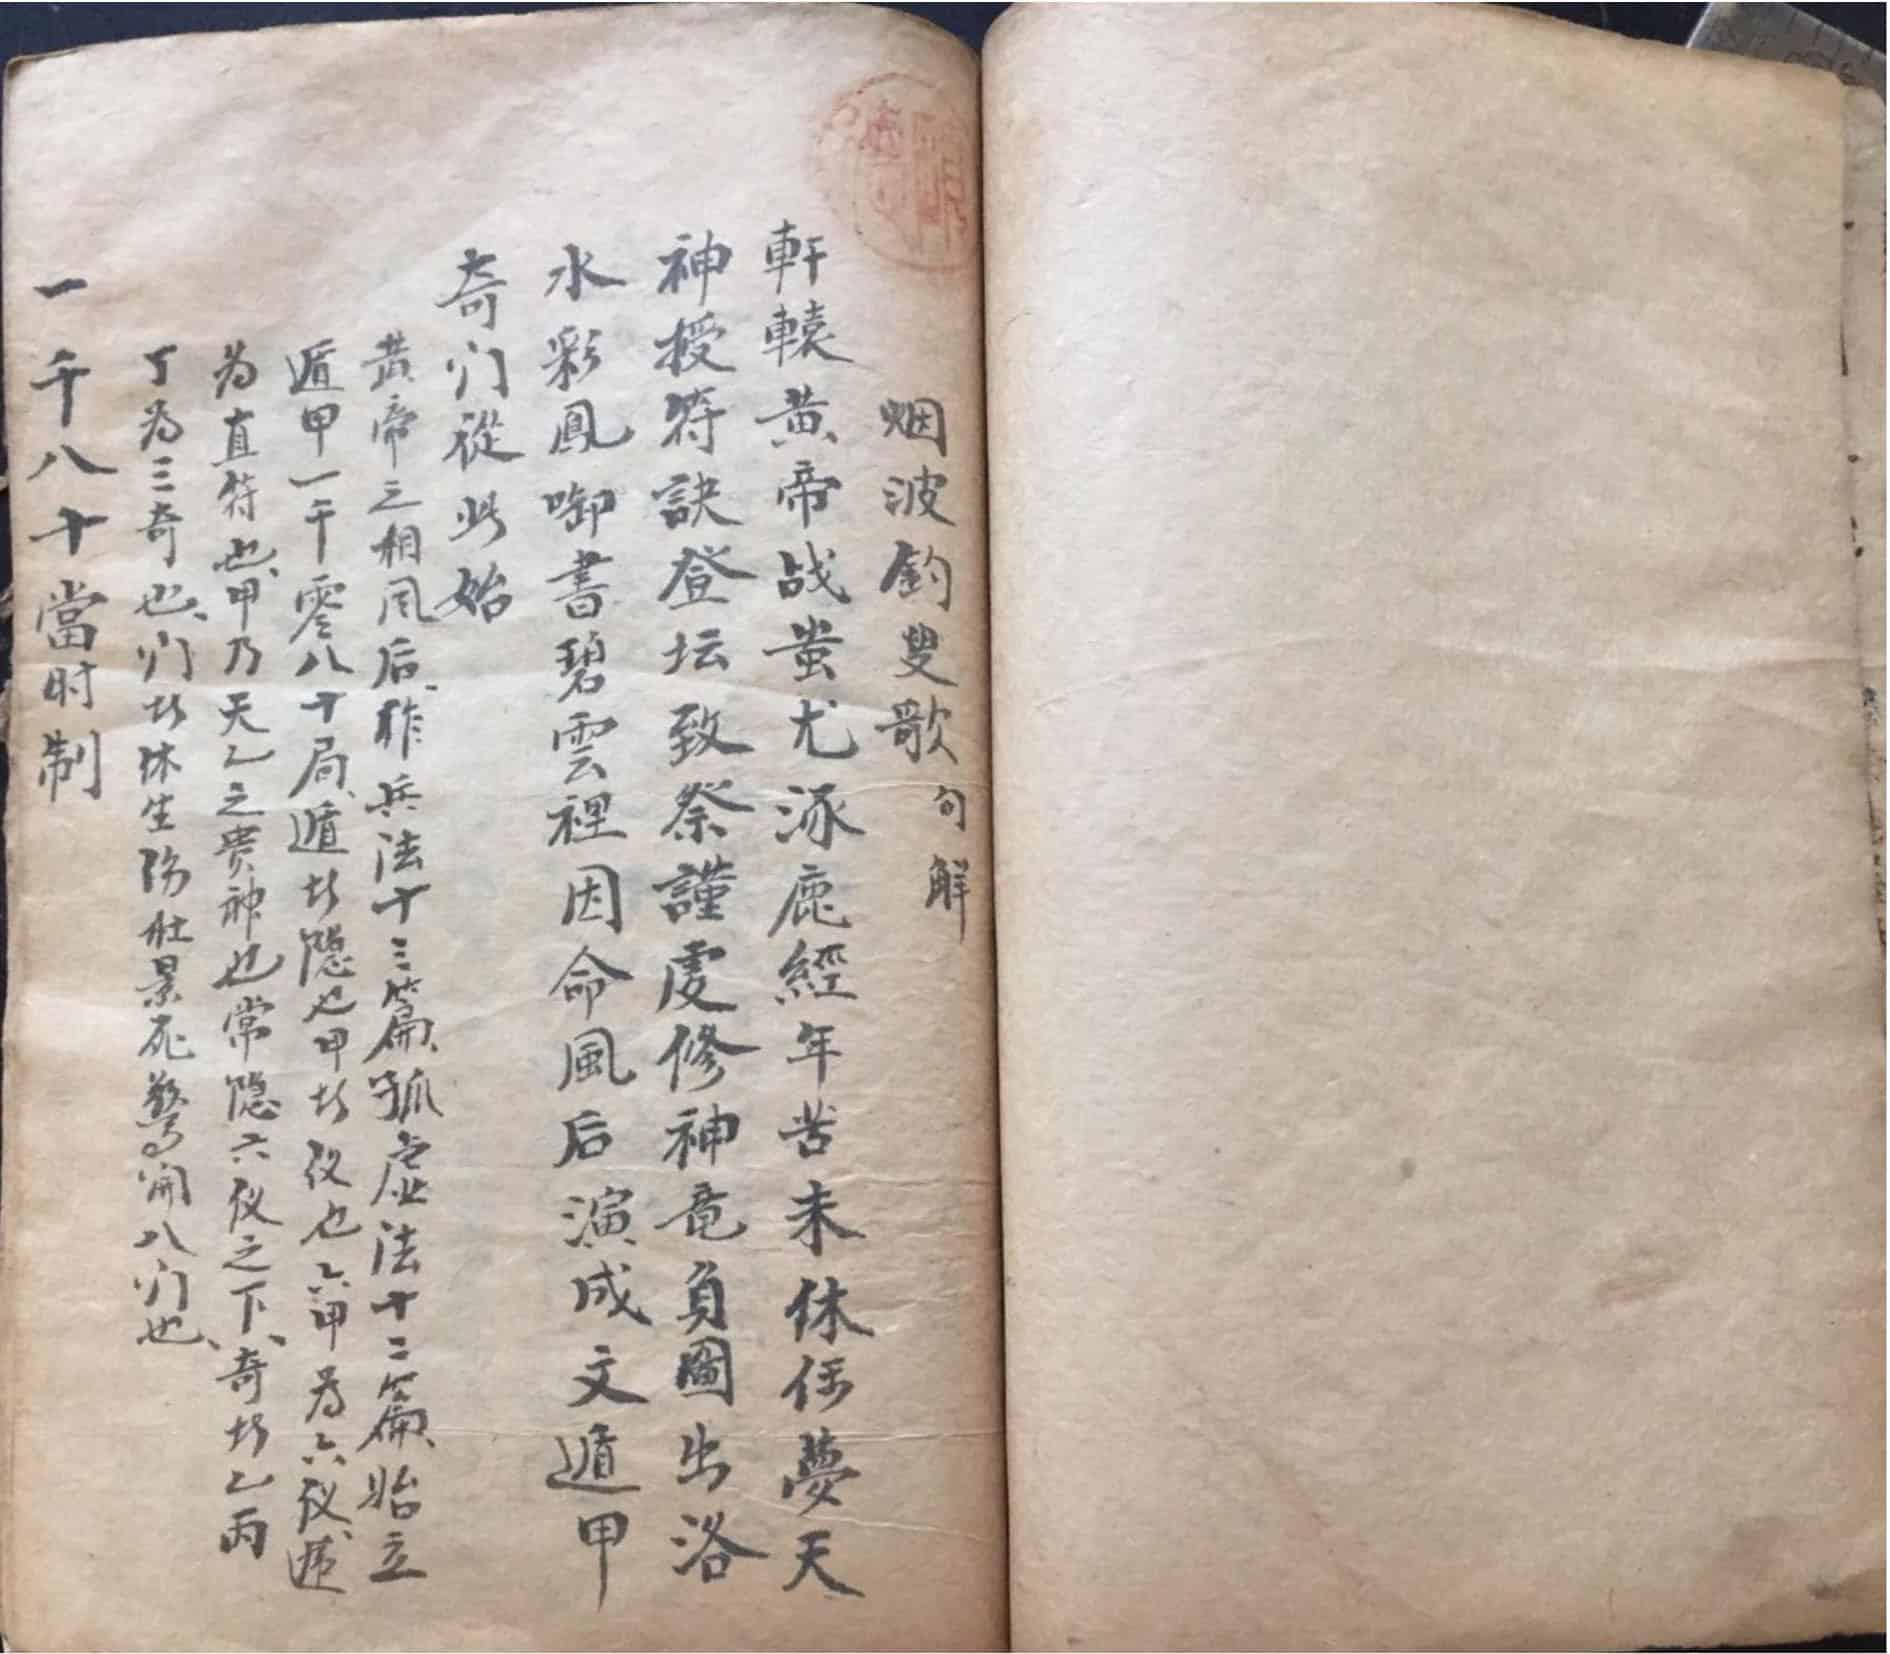 烟波釣叟歌 句解
軒轅黄帝战蚩尤涿鹿經年苦未休偶夢天
神授符訣登坛致祭謹虔修神竜負圖出洛
水彩鳳啣書碧雲裡因命風后演成文遁甲
奇门從此始
黄帝之相風后作兵法十三篇、孤虚法十二篇、始立
遁甲一千零八十局、遁者隐也甲者仪也六甲为六仪、遞
为直符也、甲乃天乙之贵神也常隐六仪之下、奇者乙丙
丁为三奇也、门者休生傷杜景死驚開八门也、
一千八十當时制